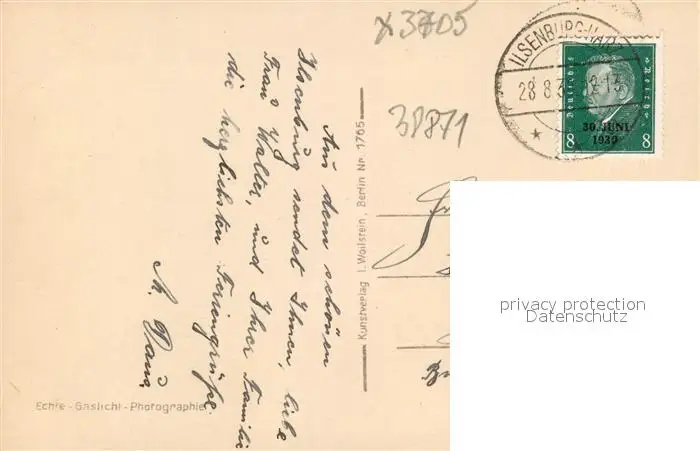 x3705
38871
ILSENBURG-HARZ
28 8 3
Deutsches Reich
30. JUNI
1930
8 8
Aus dem schönen
Ilsenburg sendet Ihnen, liebe
Frau Walter, und Ihrer Familie
die herzlichsten Feriengrüße
Kunstverlag I. Wollstein, Berlin Nr. 1765
Echte-Gaslicht-Photographie
privacy protection
Datenschutz